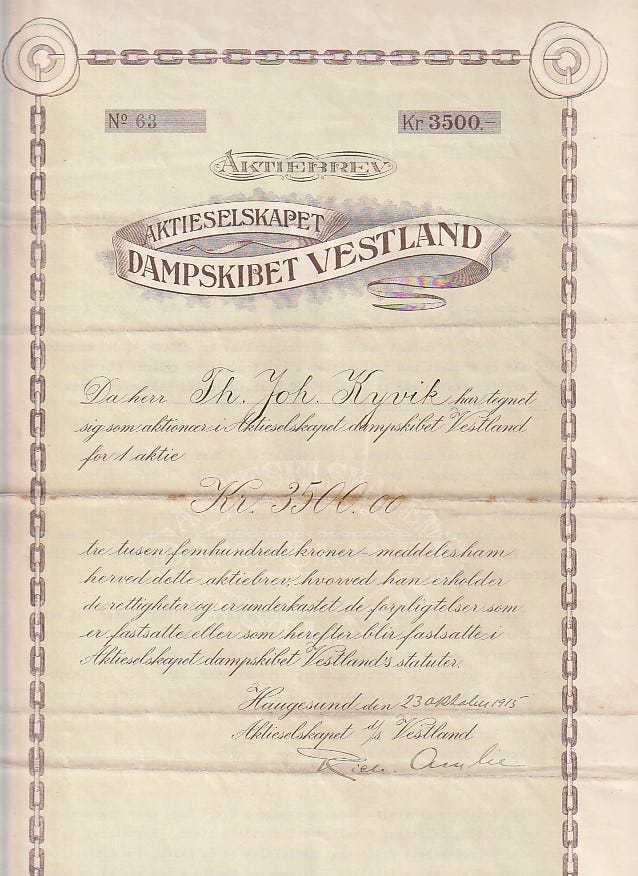 Nº 63
Kr 3500.-
AKTIEBREV
AKTIESELSKAPET
DAMPSKIBET VESTLAND
Da herr Th. Joh. Kyvik har tegnet
sig som aktionær i Aktieselskapet dampskibet Vestland
for 1 aktie
Kr. 3500.00
tre tusen femhundrede kroner - meddeles ham
herved dette aktiebrev, hvorved han erholder
de rettigheter og er underkastet de forpligtelser som
er fastsatte eller som herefter blir fastsatte i
Aktieselskapet dampskibet Vestland's statuter.
Haugesund den 23 oktober 1915
Aktieselskapet d/s Vestland